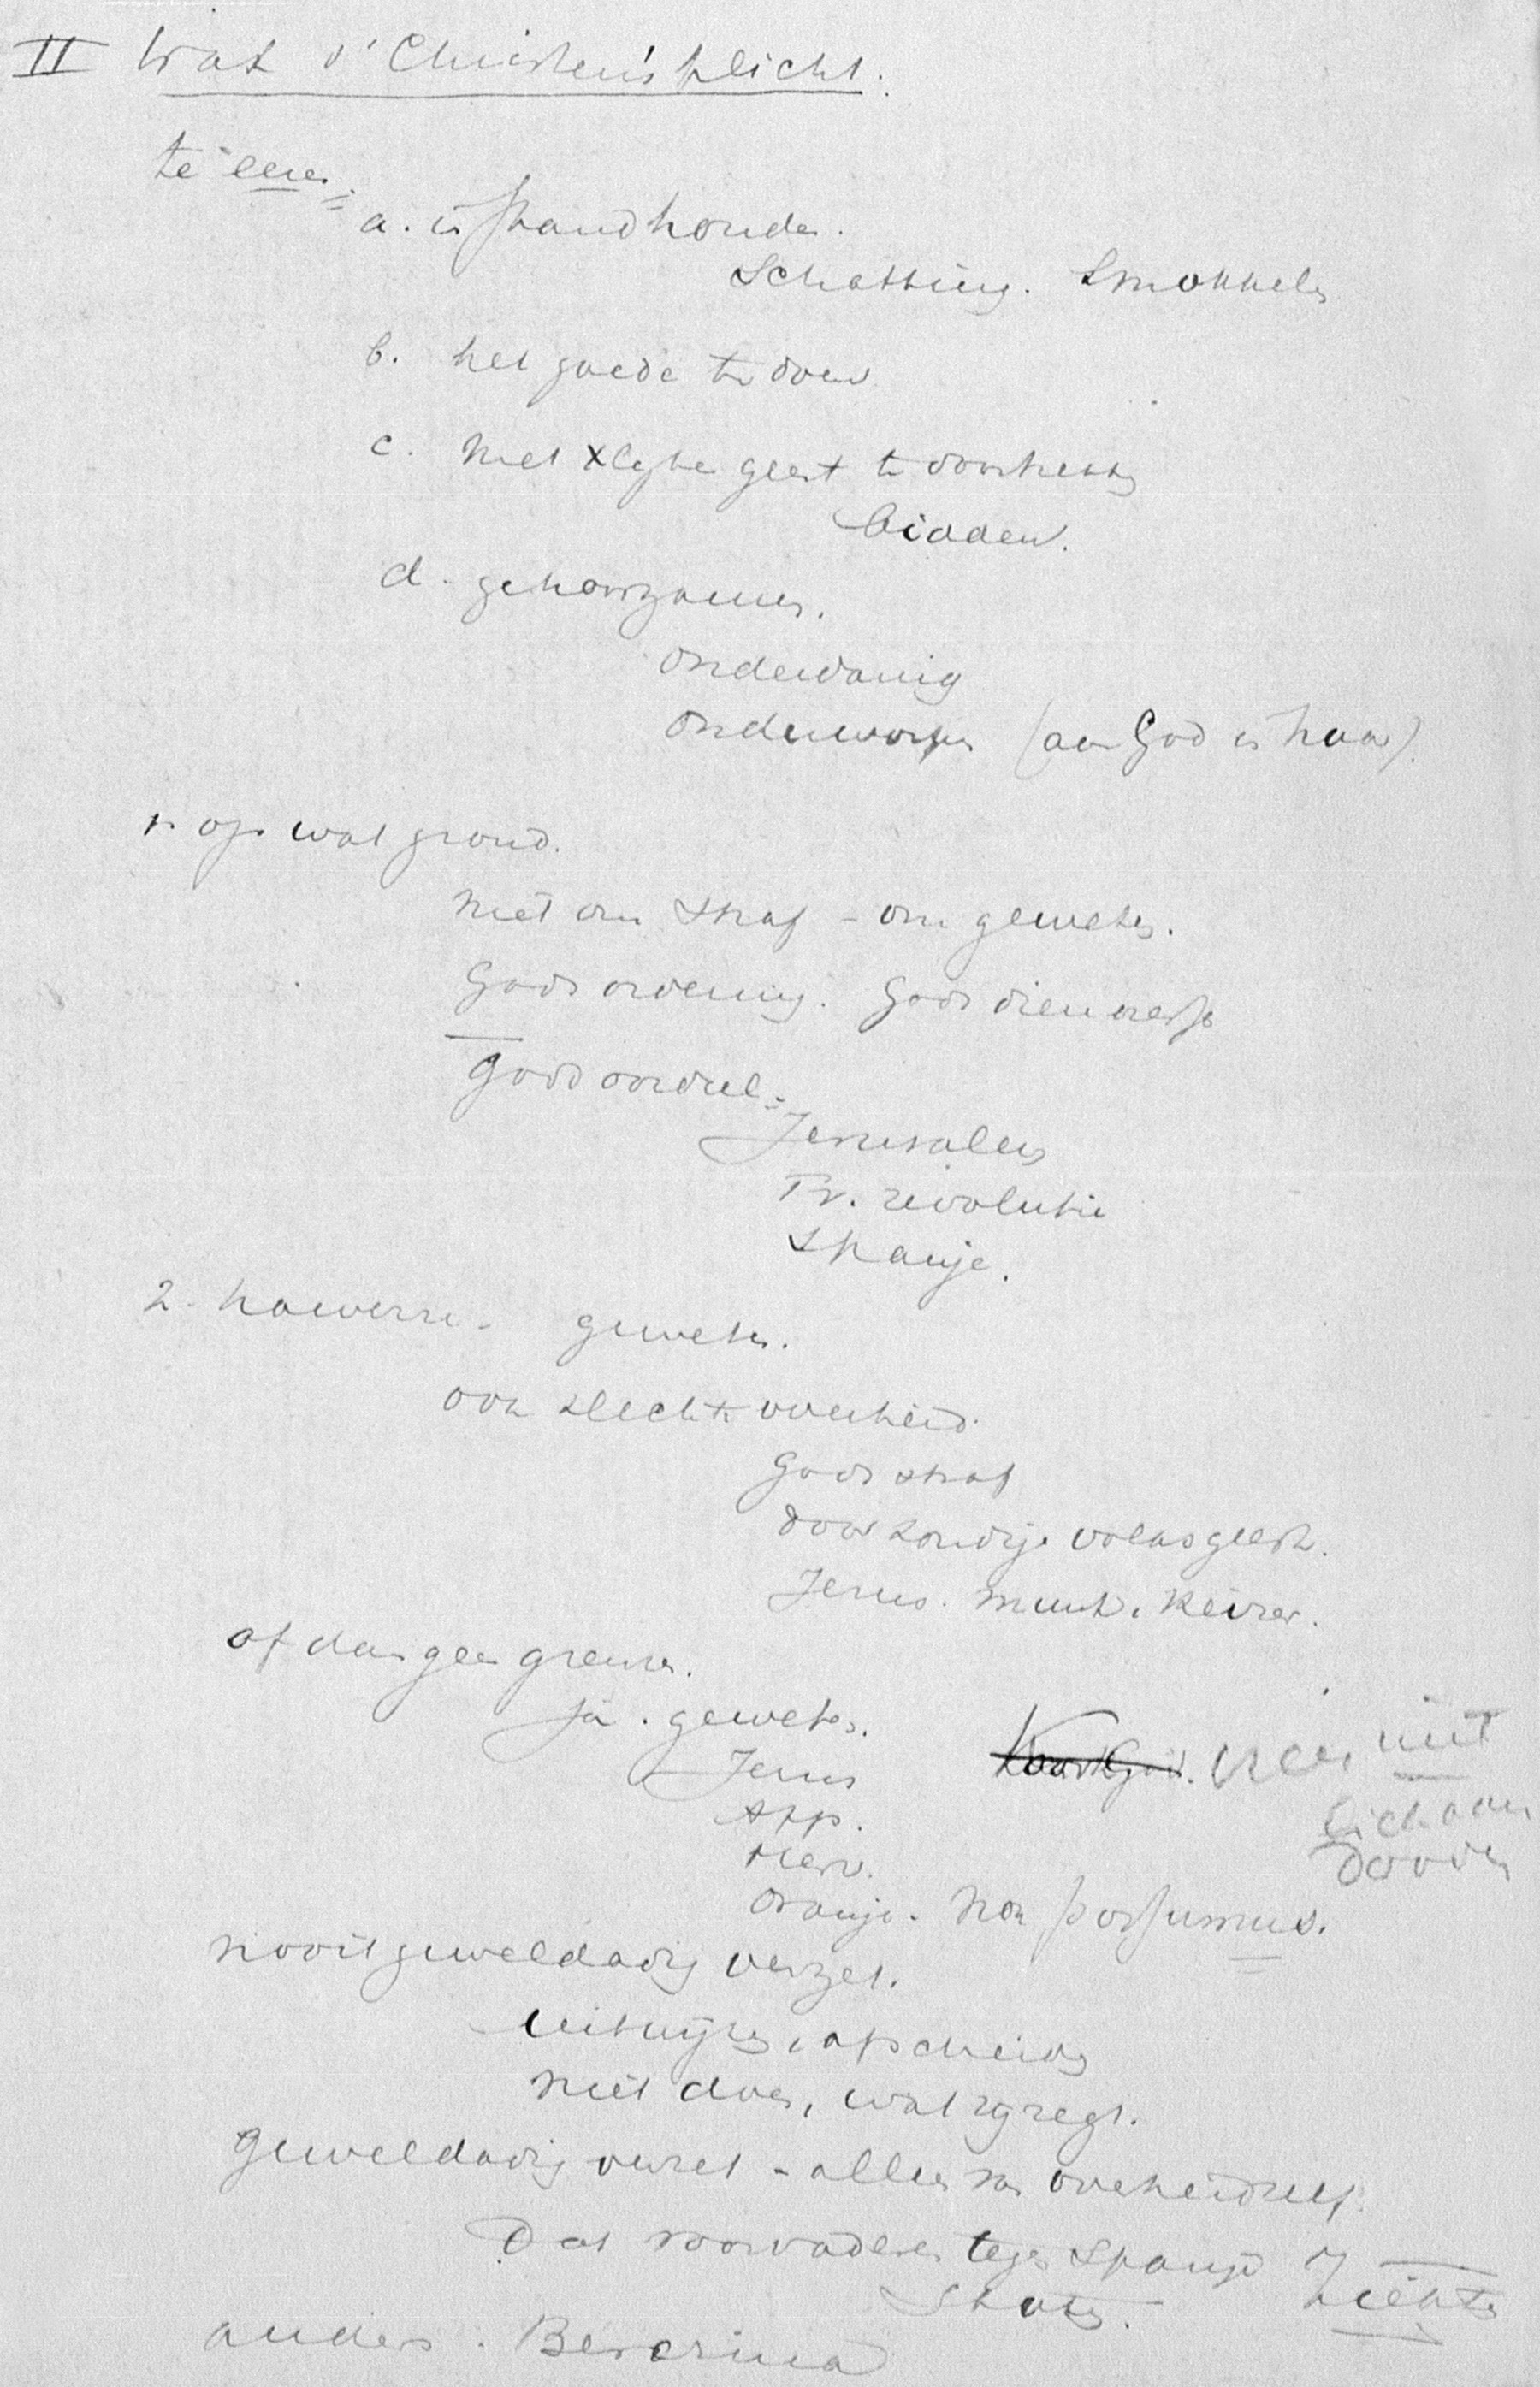 II Wat d' Christen's plicht.
te eeren:
a. in stand houden.
Schatting. Smokkelen
b. het goede te doen
c. met Xlyke geest te doortrekken
bidden.
d. gehoorzamen.
onderdanig
onderworpen (aan God in haar).
1. op wat grond.
niet om straf - om geweten.
Gods ordening. Gods dienaresse
Gods oordeel:
Jerusalem
Fr. revolutie
Spanje.
2. hoeverre - geweten.
ook slechte overheid.
Gods straf
door zondige volksgeest.
Jerus. munt. Keizer.
of dan geen grenzen.
Ja. geweten.
Jezus
App.
Herv.
Oranje. non possumus.
vrees niet
lichaam
dooden
nooit gewelddadig verzet.
uitwijken, afscheiden
niet doen, wat zij zegt.
Gewelddadig verzet - alleen van overheid zelf.
Dat voorvaderen tegen Spanje
Staten.
anders.